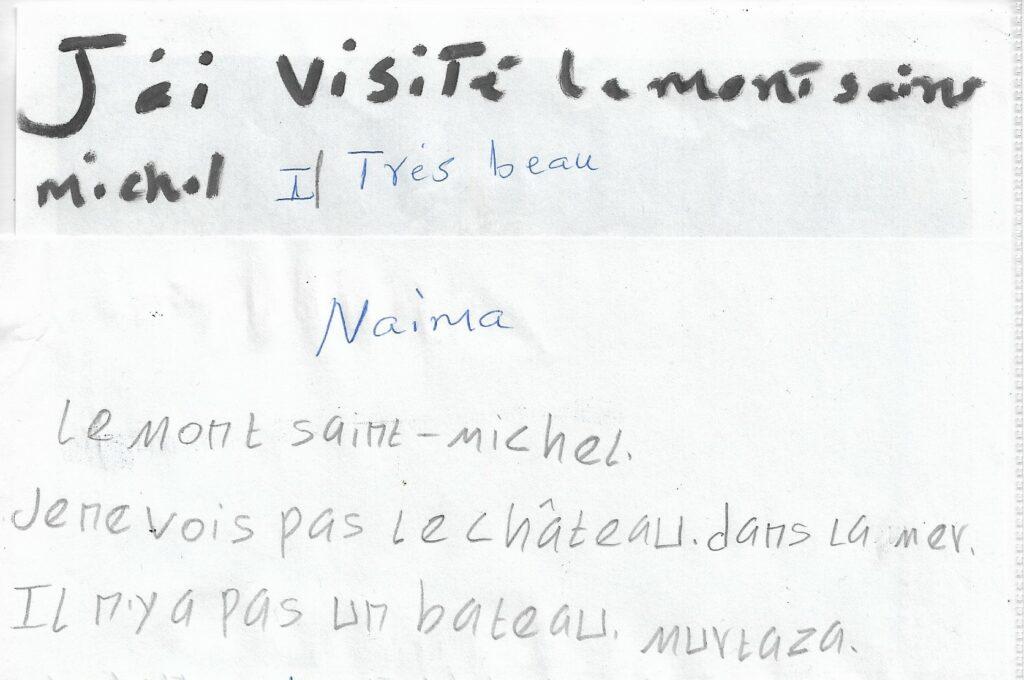 J'ai visité le mont saint
michel Il Très beau
Naima
le mont saint-michel.
Je ne vois pas le château. dans la mer.
Il n'y a pas un bateau. Murtaza.